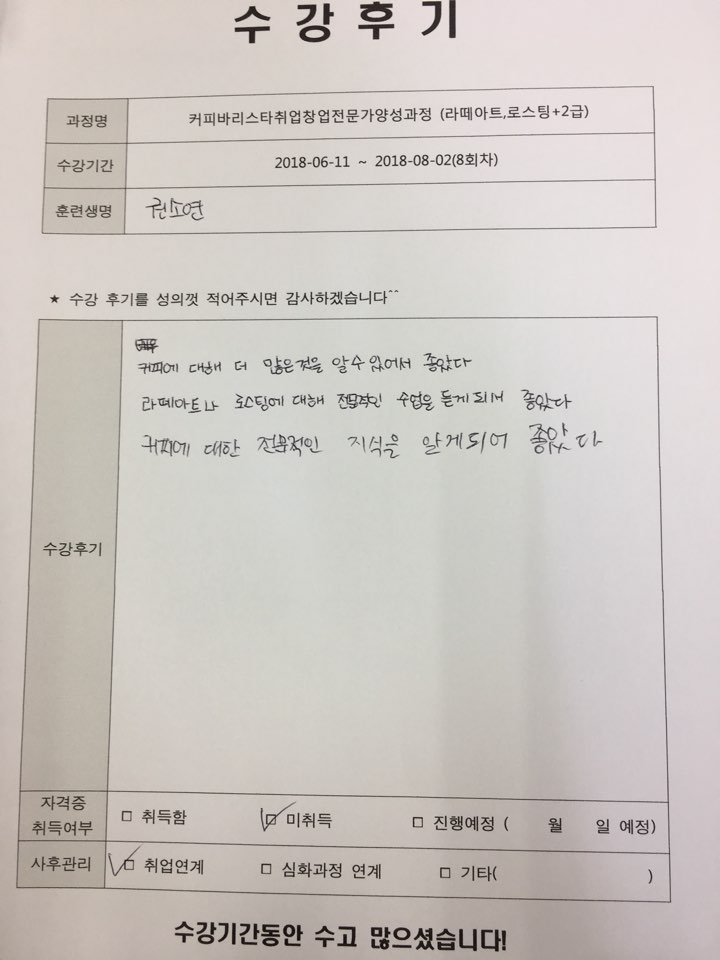 수강후기
과정명 커피바리스타취업창업전문가양성과정 (라떼아트,로스팅+2급)
수강기간 2018-06-11 ~ 2018-08-02(8회차)
훈련생명 권소연
★ 수강 후기를 성의껏 적어주시면 감사하겠습니다^^
커피에 대해 더 많은것을 알수있어서 좋았다
라떼아트나 로스팅에 대해 전문적인 수업을 듣게되서 좋았다
커피에 대한 전문적인 지식을 알게되어 좋았다
수강후기
자격증
취득여부 □ 취득함 □ 미취득 □ 진행예정 ( 월 일 예정)
사후관리 □ 취업연계 □ 심화과정 연계 □ 기타( )
수강기간동안 수고 많으셨습니다!